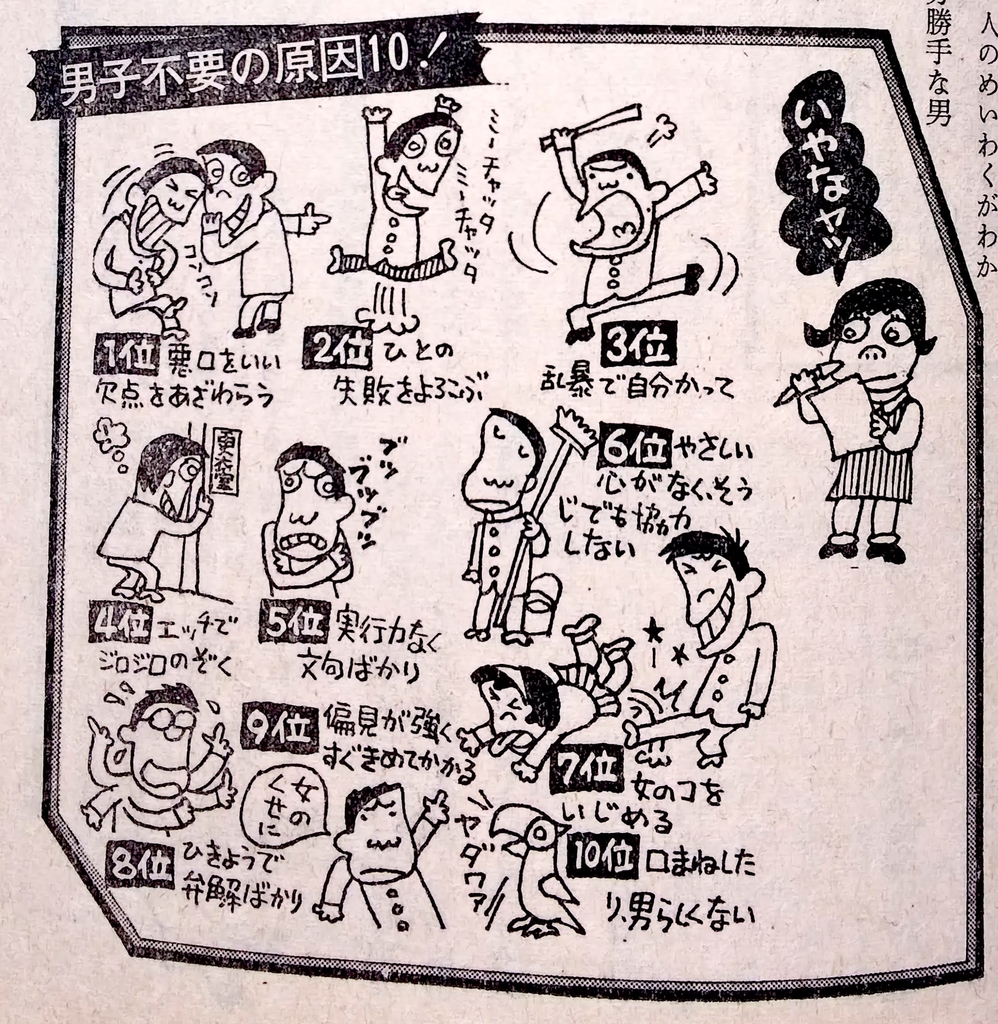 人のめいわくがわか
勝手な男
男子不要の原因10!
いやなヤツ
コソコソ
1位 悪口をいい
欠点をあざわらう
ミーチャッタ
ミーチャッタ
2位 ひとの
失敗をよろこぶ
3位
乱暴で自分かって
更衣室
4位 エッチで
ジロジロのぞく
ブツ
ブツブツ
5位 実行力なく
文句ばかり
6位 やさしい
心がなく、そう
じでも協力
しない
7位 女のコを
いじめる
8位 ひきょうで
弁解ばかり
9位 偏見が強く
すぐきめてかかる
女の
くせに
ヤダワァ
10位 口まねした
り、男らしくない